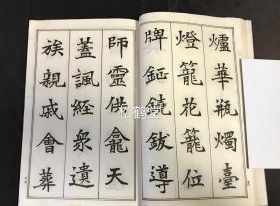 爐華瓶燭臺
燈籠花籠位
牌鉦鐃鈸導
師靈供龕天
蓋諷經衆遺
族親戚會葬